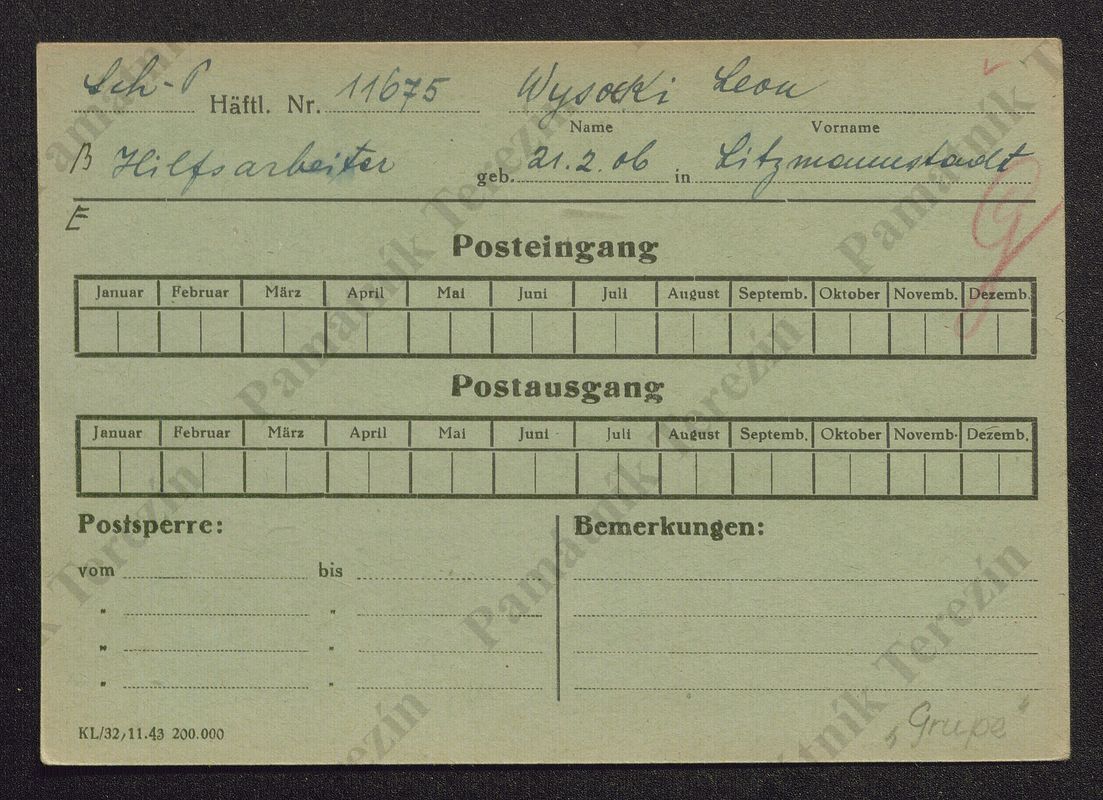 Sch-P Häftl. Nr. 11675 Wysocki Leon
Name Vorname
B Hilfsarbeiter geb. 21.2.06 in Litzmannstadt
E
Posteingang
Januar Februar März April Mai Juni Juli August Septemb. Oktober Novemb. Dezemb.
Postausgang
Januar Februar März April Mai Juni Juli August Septemb. Oktober Novemb. Dezemb.
Postsperre: Bemerkungen:
vom bis
" "
" "
" "
KL/32, 11.43 200.000
„Grupa"
Památník Terezín